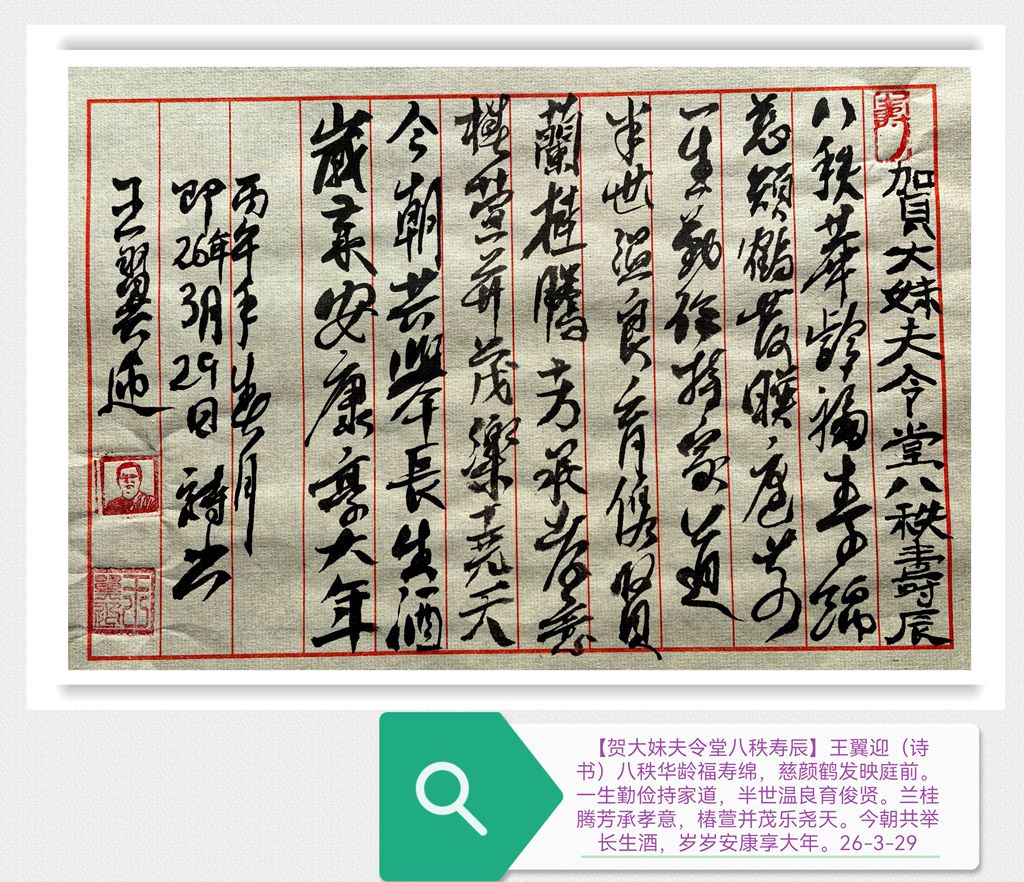 壽
賀大妹夫令堂八秩壽辰
八秩華齡福壽綿
慈顏鶴发暎庭前
一生勤俭持家道
半世温良育俊賢
蘭桂騰芳承孝意
椿萱并茂樂堯天
今朝共舉長生酒
歲歲安康享大年
丙午年春月
即26年3月29日 詩书
王翼迎
【贺大妹夫令堂八秩寿辰】王翼迎（诗
书）八秩华龄福寿绵，慈颜鹤发映庭前。
一生勤俭持家道，半世温良育俊贤。兰桂
腾芳承孝意，椿萱并茂乐尧天。今朝共举
长生酒，岁岁安康享大年。26-3-29